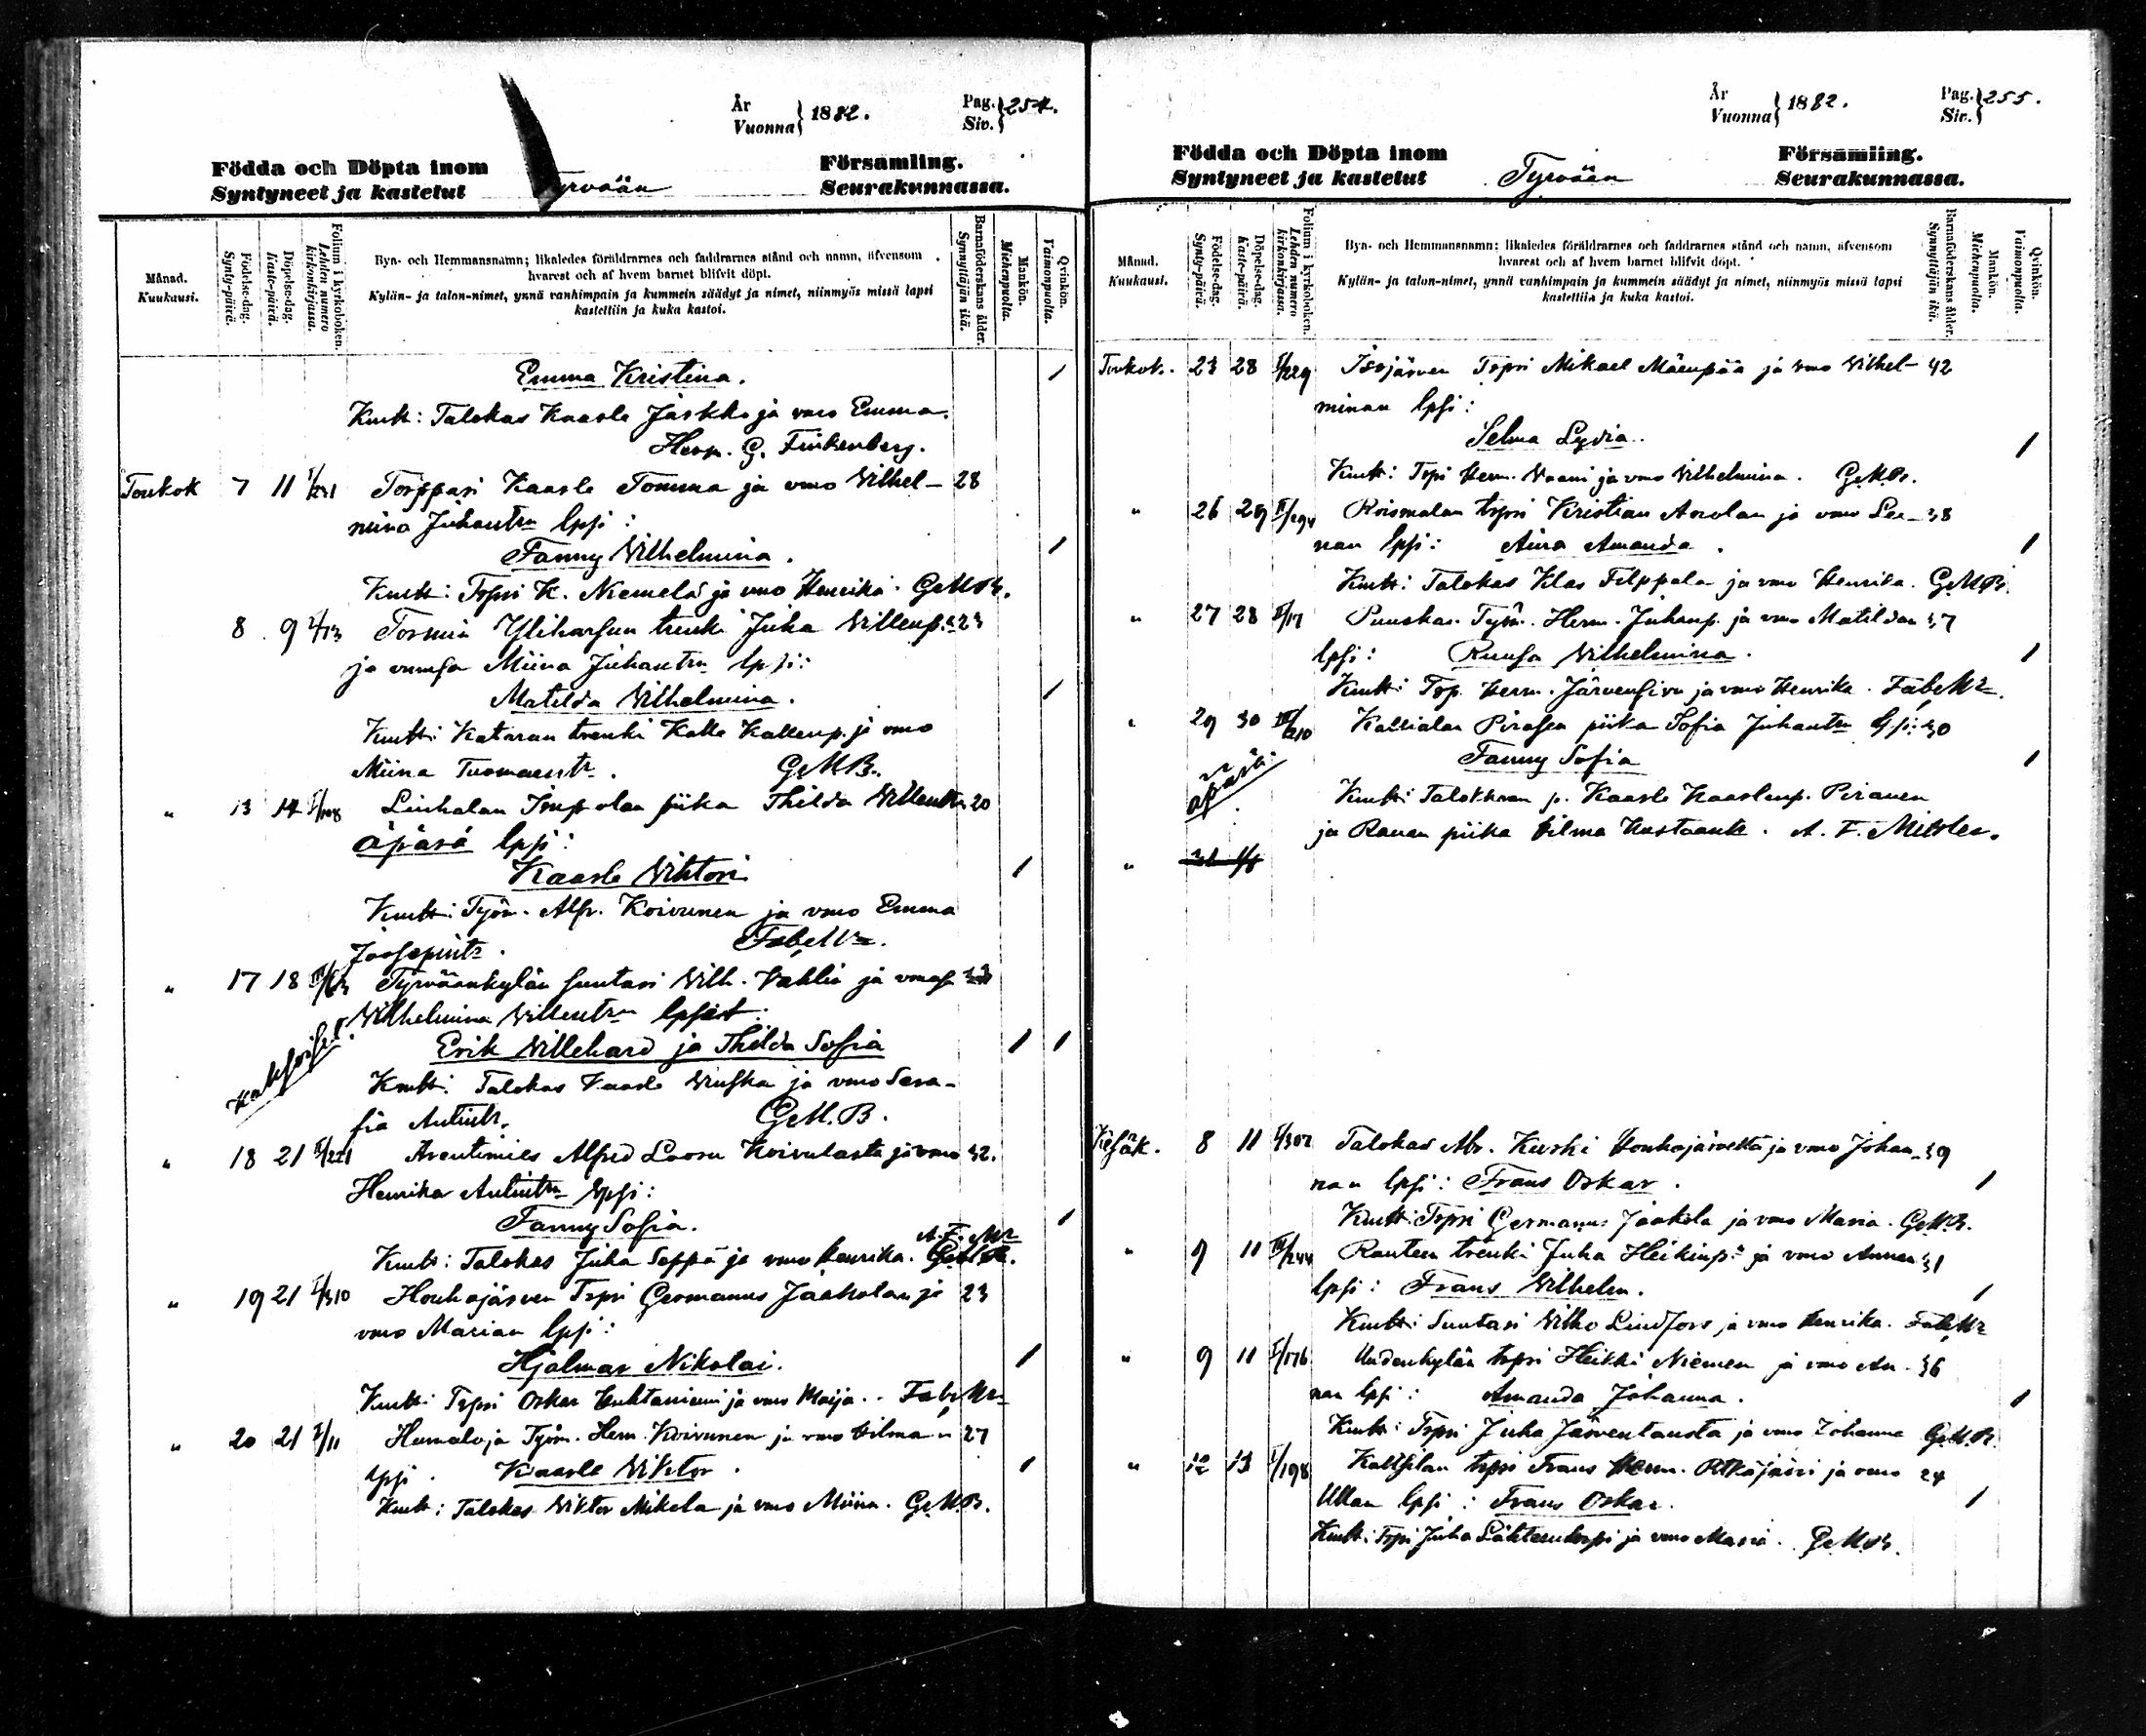 År
Vuonna } 1882.
Pag.
Siv. } 254.
Födda och Döpta inom
Syntyneet ja kastetut
Tyrvään
Församling.
Seurakunnassa.
Månad.
Kuukausi.
Födelse-dag.
Synty-päivä.
Döpelse-dag.
Kaste-päivä.
Folium i kyrkoboken.
Lehden numero kirkonkirjassa.
Byn- och Hemmansnamn; likaledes föräldrarnes och faddrarnes stånd och namn, äfvensom
hvarest och af hvem barnet blifvit döpt.
Kylän- ja talon-nimet, ynnä vanhimpain ja kummein säädyt ja nimet, niinmyös missä lapsi
kastettiin ja kuka kastoi.
Barnaföderskans ålder.
Synnyttäjän ikä.
Mankön.
Miehenpuolta.
Qvinkön.
Vaimonpuolta.
Emma Kristina. /
Kmtt: Talokas Kaarle Jaskka ja vmo Emma.
Herm. G. Finkenberg.
Toukok 7 11 I/231 Torppari Kaarle Tomma ja vmo Vilhel- 28
mina Juhantr lpsi:
Fanny Wilhelmina. /
Kmtt: Trpri K. Niemelä ja vmo Henrika. G.M.B.
8 9 I/73 Tormin Yliharsun trenki Juha Willenp. 23
ja vmonsa Miina Juhantr lpsi:
Matilda Wilhelmina. /
Kmtt: Kataran trenki Kalle Kallenp. ja vmo
Miina Tuomaantr. G.M.B.
" 13 14 I/108 Liuhalan Impolan piika Thilda Willentr 20
äpärä lpsi:
Kaarle Wihtori /
Kmtt: Työm. Alfr. Koivunen ja vmo Emma
Joosepintr. Fab. Mr.
" 17 18 Tyrväänkylän suutari Wilh. Vahlin ja vmons 33
Wilhelmina Willentr lpset:
Kaksoiset.
Erik Willehard ja Thilda Sofia / /
Kmtt: Talokas Kaarle Uuska ja vmo Sera-
fia Antintr. G.M.B.
" 18 21 II/221 Arentimies Alfred Laoru Koivulasta ja vmo 32.
Henrika Antintr lpsi:
Fanny Sofia. /
Kmtt: Talokas Juha Seppä ja vmo Henrika. A. F. Mr
" 19 21 I/310 Houhajärven Trpri Germanus Jaakolan ja 23
vmo Marian lpsi:
Hjalmar Nikolai. /
Kmtt: Trpri Oskar Huhtaniemi ja vmo Maija. Fab. Mr
" 20 21 I/11 Humaloja Työm. Herm. Koivunen ja vmo Hilma n 27
lpsi. Kaarle Wiktor. /
Kmtt: Talokas Wiktor Mikola ja vmo Miina. G.M.B.
År
Vuonna } 1882.
Pag.
Siv. } 255.
Födda och Döpta inom
Syntyneet ja kastetut
Tyrvään
Församling.
Seurakunnassa.
Månad.
Kuukausi.
Födelse-dag.
Synty-päivä.
Döpelse-dag.
Kaste-päivä.
Folium i kyrkoboken.
Lehden numero kirkonkirjassa.
Byn- och Hemmansnamn; likaledes föräldrarnes och faddrarnes stånd och namn, äfvensom
hvarest och af hvem barnet blifvit döpt.
Kylän- ja talon-nimet, ynnä vanhimpain ja kummein säädyt ja nimet, niinmyös missä lapsi
kastettiin ja kuka kastoi.
Barnaföderskans ålder.
Synnyttäjän ikä.
Mankön.
Miehenpuolta.
Qvinkön.
Vaimonpuolta.
Toukok. 23 28 I/229 Isojärven Trpri Mikael Mäenpää ja vmo Vilhel- 42
minan lpsi:
Selma Lydia. /
Kmtt: Trpri Herm. Waani ja vmo Vilhelmina. G.M.B.
" 26 29 II/294 Roismalan trpri Kristian Anolan ja vmo Lee- 38
nan lpsi: Aina Amanda. /
Kmtt: Talokas Klas Filppala ja vmo Henrika. G.M.B.
" 27 28 II/17 Punskas. Työm. Herm. Juhanp. ja vmo Matildan 37
lpsi: Ruusa Wilhelmina. /
Kmtt: Trp. Herm. Järvensivu ja vmo Henrika. Fab. Mr.
" 29 30 III/210 Kallialan Pirasen piika Sofia Juhantr lpsi: 30
äpärä
Fanny Sofia /
Kmtt: Talokkaan p. Kaarle Kaarlenp. Piranen
ja Rauan piika Hilma Kustaantr. A. F. Mettler.
" 31 1/6
Kesäk. 8 11 I/302 Talokas Abr. Kurki Houhajärveltä ja vmo Johan- 39
nan lpsi: Frans Oskar. /
Kmtt: Trpri Germanus Jaakola ja vmo Maria. G.M.B.
" 9 11 III/244 Rauten trenki Juha Heikinp. ja vmo Annan 31
lpsi: Frans Wilhelm. /
Kmtt: Suutari Wilho Lindfors ja vmo Henrika. Fab. Mr
" 9 11 I/176 Uudenkylän trpri Heikki Niemen ja vmo An- 36
nan lpsi: Amanda Johanna. /
Kmtt: Trpri Juha Järventausta ja vmo Johanna G.M.B.
" 12 13 I/198 Kaltsilan trpri Frans Herm. Pitkäjärvi ja vmo 24
Ullan lpsi: Frans Oskar. /
Kmtt: Trpri Juha Lähteenkorpi ja vmo Maria. G.M.B.